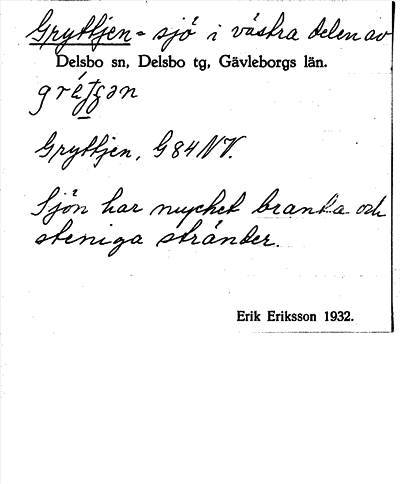 Gryttjen - sjö i västra delen av
Delsbo sn, Delsbo tg, Gävleborgs län.
Gryttjen, G84NV.
Sjön har mycket branta och
steniga stränder.
Erik Eriksson 1932.